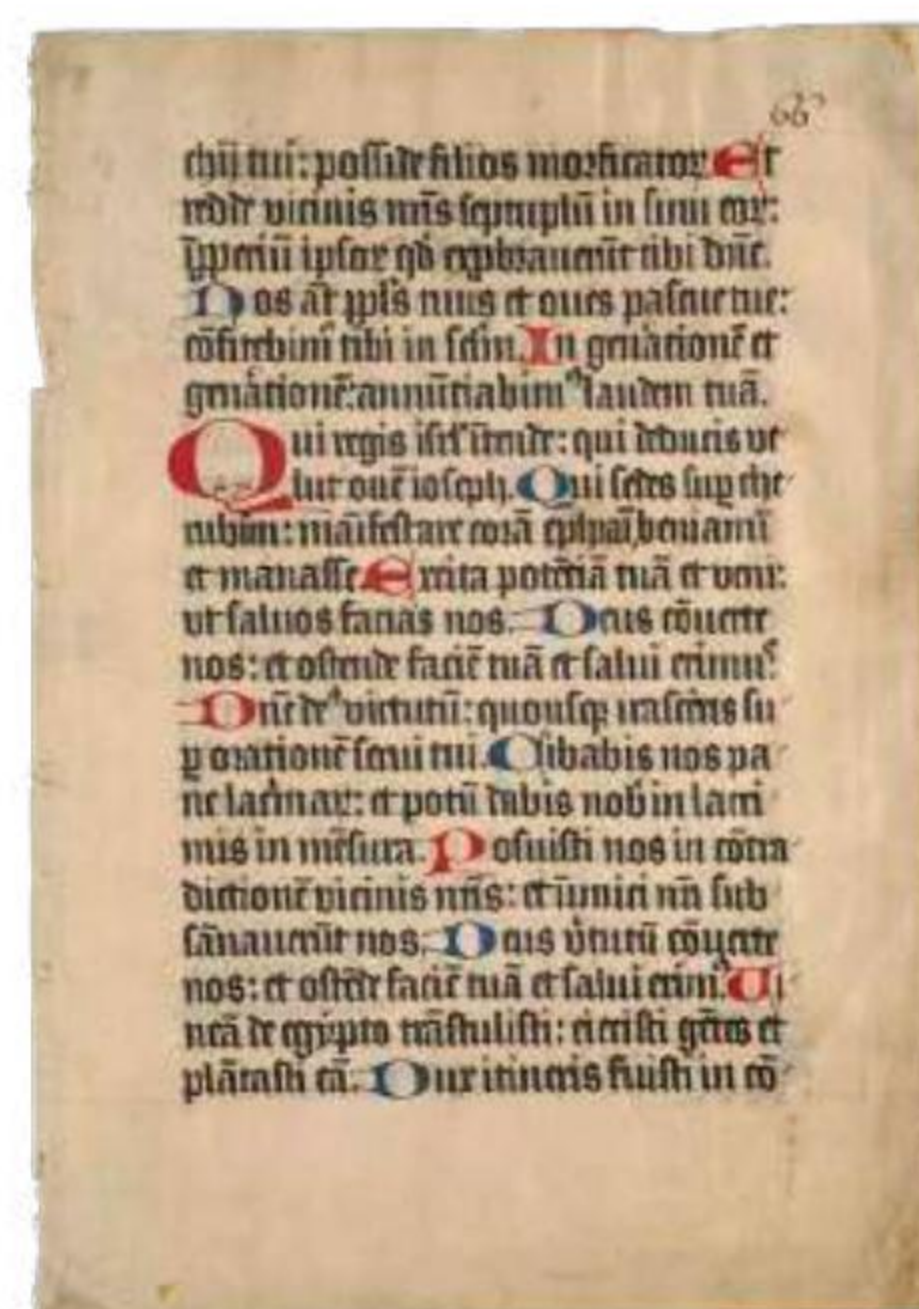 66
chii tui: posside filios mortificator Et
redde vicinis nr̄is septuplū in sinu eor:
īpperiū ipsor qd exprobrauerūt tibi dn̄e.
Nos āt ppl̄s tuus et oues pascue tue:
cōfitebim᷒ tibi in sclm̄. In gen̄ationē et
gen̄ationē: annūtiabimꝰ laudem tuā.
Qui regis isrl̄ ītende: qui deducis ve
lut ouē ioseph. Qui sedes sup che
rubim: māifestare corā ephraī beniamī
et manasse Excita potētiā tuā et veni:
vt saluos facias nos. Deus cōuerte
nos: et ostende faciē tuā et salui erimuꝰ.
Dn̄e deꝰ virtutū: quousqꝫ irasceris su
ꝑ orationē serui tui. Cibabis nos pa
ne lac̄mar: et potū dabis nob̄ in lacri
mis in mēsura. Posuisti nos in cōtra
dictionē vicinis nr̄is: et īimici nr̄i sub
sānauerūt nos. Deus v̄tutū cōuerte
nos: et ostēde faciē tuā et salui erimꝰ. Ui
neā de egypto trāstulisti: eiecisti gētes et
plātasti eā. Dux itineris fuisti in cō